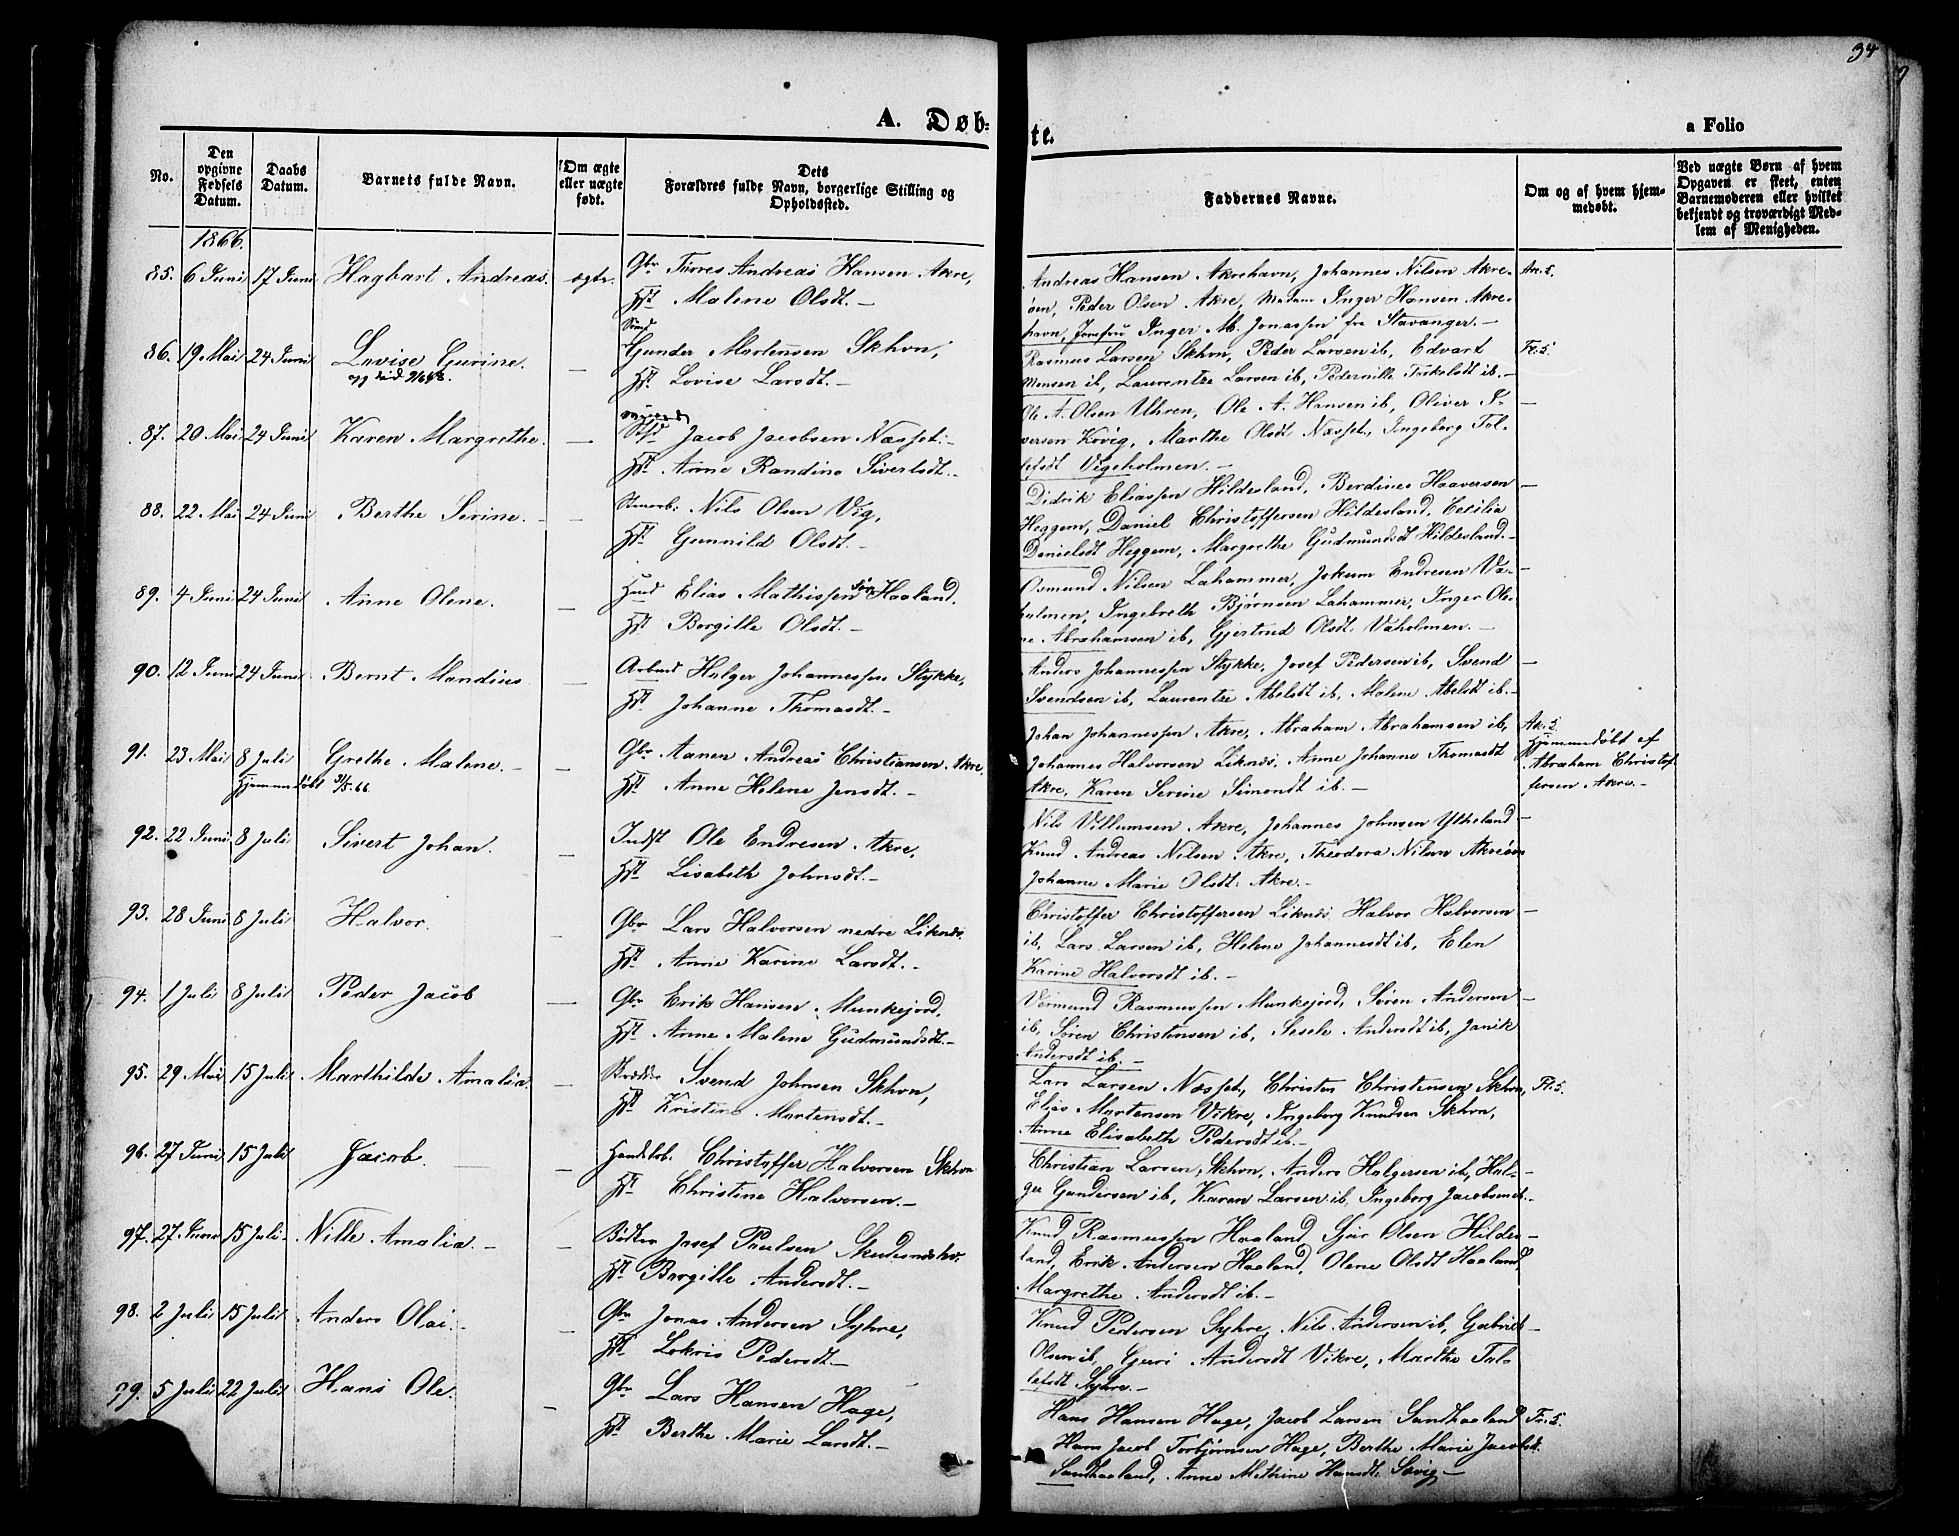 34
A. Døb=
te.
a Folio
No.
Den opgivne Fødsels Datum.
Daabs Datum.
Barnets fulde Navn.
Om ægte eller uægte født.
Dets Forældres fulde Navn, borgerlige Stilling og Opholdssted.
Faddernes Navne.
Om og af hvem hjemmedøbt.
Ved uægte Børn af hvem Opgaven er skeet, enten Barnemoderen eller hvilket bekjendt og troværdigt Medlem af Menigheden.
1866.
85. 6 Juni 17 Juni Hagbart Andreas. ægte. Gbr Tørres Andreas Hansen Akre,
Hst Malene Olsdt. –
Andreas Hansen Akrehavn, Johannes Nilsen Akre-
øen, Peder Olsen Akre, Madam Inger Hansen Akre-
havn, Jomfru Inger M. Jonassen fra Stavanger. –
86. 19 Mai 24 Juni Lovise Gurine. – Gunder Mortensen Skhvn,
Hst Lovise Larsdt. –
Rasmus Larsen Skhvn, Peder Larsen ib, Edvart
Monsen ib, Laurentze Larsen ib, Pedernille ib. –
87. 20 Mai 24 Juni Karen Margrethe. – Jacob Jacobsen Næsset. –
Hst Anne Randine Sivertsdt. –
Ole A. Olsen Uhren, Ole A. Hansen ib, Oliver I-
versen Kovig, Marthe Olsdt Næsset, Ingeborg Tol-
lefsdt Vigeholmen. –
88. 22 Mai 24 Juni Berthe Serine. – Nils Olsen Vig,
Hst Gunnild Olsdt. –
Didrik Eliassen Hildesland, Berdines Haaversen
Heggem, Daniel Christoffersen Hildesland, Cecilia
Danielsdt Heggem, Margrethe Gudmundsdt Hildesland. –
89. 4 Juni 24 Juni Anne Olene. – Hmd Elias Mathissen Haaland.
Hst Borgille Olsdt. –
Osmund Nilsen Lahammer, Jokum Endresen Va-
holmen, Ingebreth Bjørnsen Lahammer, Inger Ole-
ne Abrahamsen ib, Gjertrud Olsdt. Vaholmen. –
90. 12 Juni 24 Juni Bernt Mandius – Arbmd Holger Johannessen Stykke,
Hst Johanne Thomasdt. –
Anders Johannessen Stykke, Josef Pedersen ib, Svend
Svendsen ib, Laurentze Abelsdt ib, Malene Abelsdt ib. –
91. 23 Mai 8 Juli Grethe Malene. – Gbr Aanen Andreas Christiansen Akre,
Hjemmedøbt 31/5 66 Hst Anne Helene Jensdt. –
Johan Johannessen Akre, Abraham Abrahamsen ib,
Johannes Halvorsen Liknes, Anne Johanne Thomasdt
Akre, Karen Serine Simondt ib. –
Hjemmedøbt af
Abraham Christof-
fersen Akre. –
92. 22 Juni 8 Juli Sivert Johan. – Indst Ole Endresen Akre,
Hst Lisabeth Johnsdt. –
Nils Villumsen Akre, Johannes Johnsen Ytreland
Knud Andreas Nilsen Akre, Theodora Nilsen Akreøen
Johanne Marie Olsdt: Akre. –
93. 28 Juni 8 Juli Halvor. – Gbr Lars Halvorsen nedre Liknes.
Hst Anne Karine Larsdt. –
Christoffer Christoffersen Liknes, Halvor Halvorsen
ib, Lars Larsen ib, Helene Johannesdt ib, Elen
Karine Halvorsdt ib. –
94. 1 Juli 8 Juli Peder Jacob – Gbr Erik Hansen Munkejord,
Hst Anne Malene Gudmundsdt. –
Vermund Rasmussen Munkejord, Søren Andersen
ib, Søren Christensen ib, Sesele Andersdt ib, Janik
Andersdt ib. –
95. 29 Mai 15 Juli Marthilde Amalia – Svend Johnsen Skhvn,
Hst Kristine Mortensdt. –
Lars Larsen Næsset, Christen Christensen Skhvn,
Elias Mortensen Vikre, Ingeborg Knudsen Skhvn,
Anne Elisabeth Pedersdt ib. –
96. 27 Juni 15 Juli Jacob. – Handelsb. Christoffer Halvorsen Skhvn
Hst Christine Halvorsen. –
Christian Larsen Skhvn, Anders Holgersen ib, Hol-
ger Gundersen ib, Karen Larsen ib, Ingeborg Jacobsen ib. –
97. 27 Juni 15 Juli. Nille Amalia. – Bødker Josef Poulsen Skudesneshv.
Hst Borgille Andersdt. –
Knud Rasmussen Haaland, Sjur Olsen Hildes-
land, Erik Andersen Haaland, Olene Olsdt Haaland,
Margrethe Andersdt ib. –
98. 2 Juli 15 Juli Anders Olai. – Gbr Jonas Andersen Syhre,
Hst Lokris Pedersdt –
Knud Pedersen Syhre, Nils Andersen ib, Gabriel
Olsen ib, Guri Andersdt Vikre, Marthe Tol-
lefsdt Syhre. –
99. 5 Juli 22 Juli Hans Ole. – Gbr Lars Hansen Hage,
Hst Berthe Marie Larsdt. –
Hans Hansen Hage, Jacob Larsen Sandhaaland
Hans Jacob Torbjørnsen Hage, Berthe Marie Jacobsdt.
Sandhaaland, Anne Mathine Hansdt: Sævig –